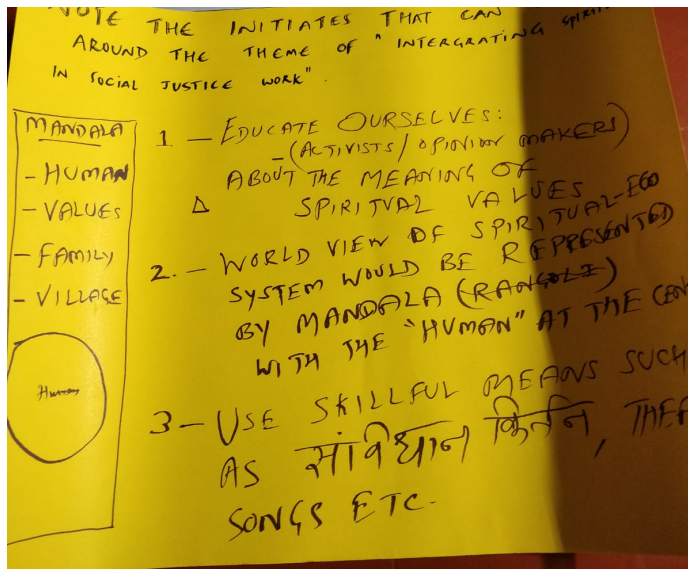 NOTE THE INITIATES THAT CAN
AROUND THE THEME OF " INTERGRATING SPIRIT
IN SOCIAL JUSTICE WORK".
MANDALA
- HUMAN
- VALUES
- FAMILY
- VILLAGE
Human
1 - EDUCATE OURSELVES:
- (ACTIVISTS / OPINION MAKERS)
ABOUT THE MEANING OF
Δ SPIRITUAL VALUES
2. - WORLD VIEW OF SPIRITUAL-EGO
SYSTEM WOULD BE REPRESENTED
BY MANDALA (RANGOLI)
WITH THE "HUMAN" AT THE CEN
3 - USE SKILLFUL MEANS SUCH
AS सांविधान किर्तन, THEA
SONGS ETC.